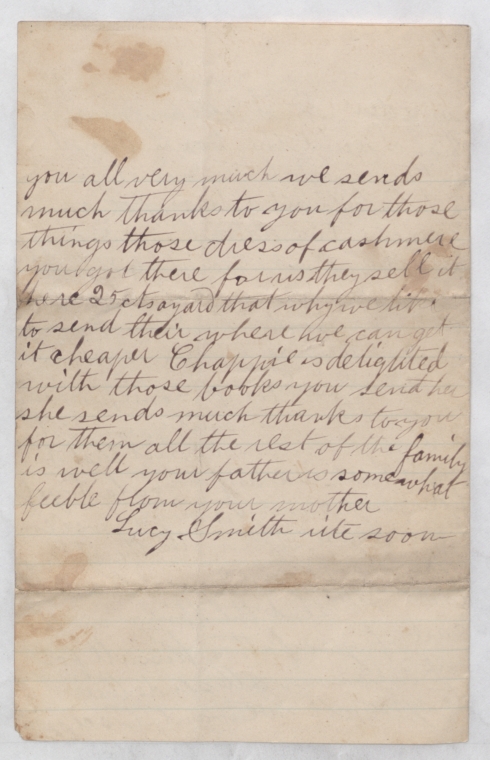 you all very much we sends
much thanks to you for those
things those dress of cashmere
you got there for us they sell it
here 25 cts a yard that why we
to send their where we can get
it cheaper Chappie is delighted
with those books you send her
she sends much thanks to you
for them all the rest of the family
is well your father is somewhat
feeble from your mother
Lucy Smith rite soon